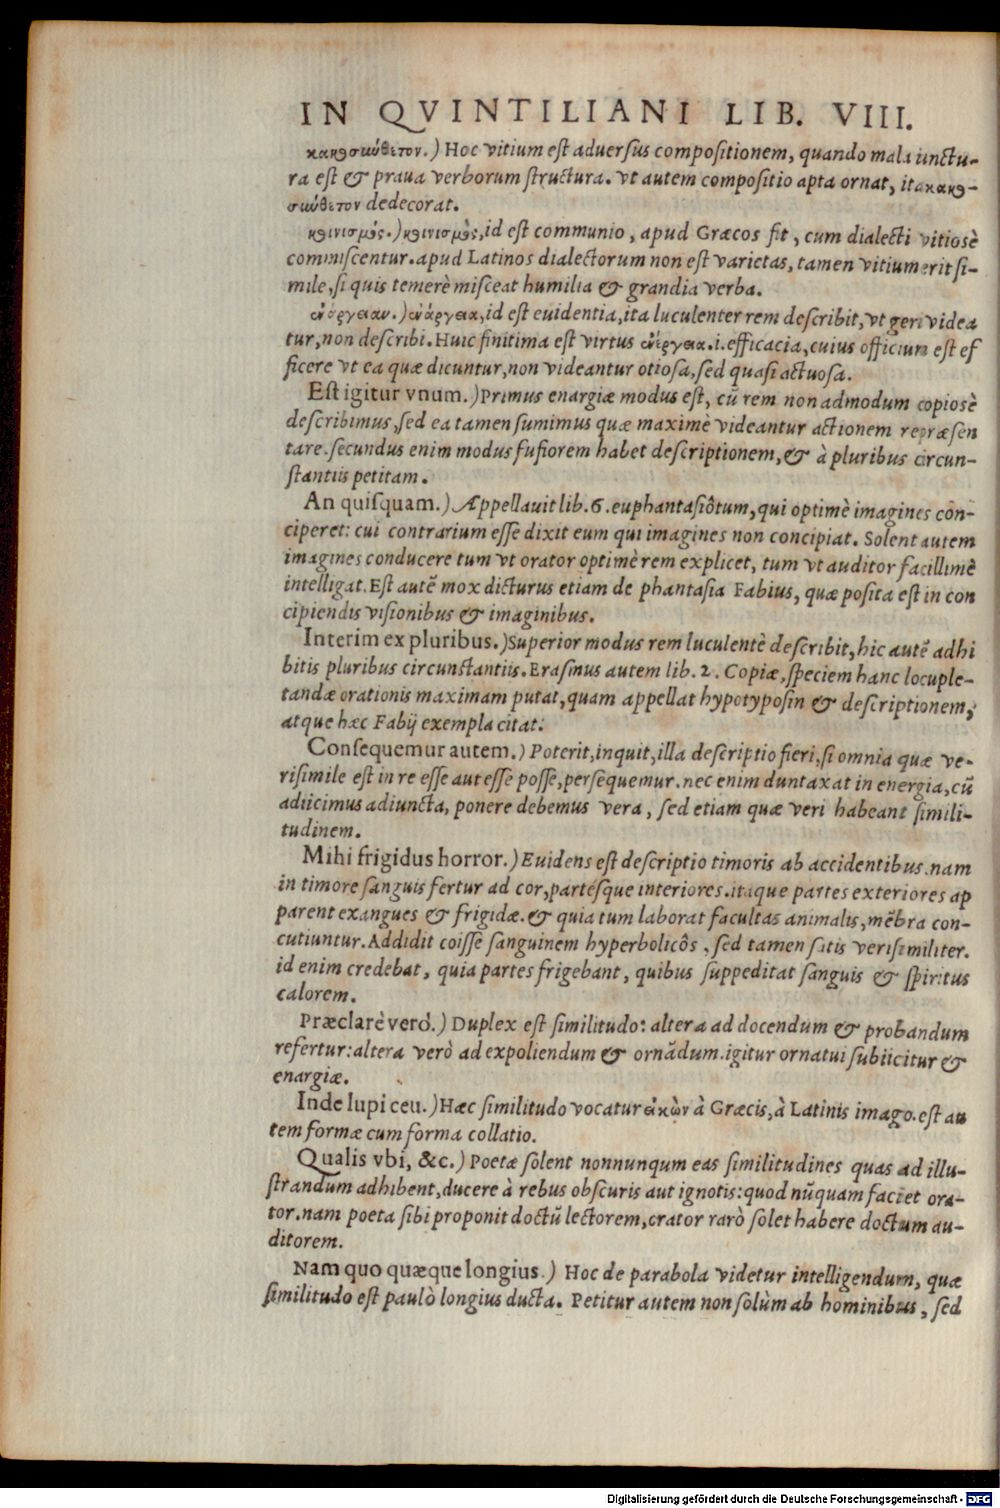 IN QVINTILIANI LIB. VIII.
κακοσύνθετον.) Hoc vitium est aduersus compositionem, quando mala iunctu-
ra est & praua verborum structura. vt autem compositio apta ornat, ita κακο-
σύνθετον dedecorat.
κοινισμός.) κοινισμὸς, id est communio, apud Græcos fit, cum dialecti vitiosè
commiscentur. apud Latinos dialectorum non est varietas, tamen vitium erit si-
mile, si quis temerè misceat humilia & grandia verba.
ἐνάργειαν.) ἐνάργεια, id est euidentia, ita luculenter rem describit, vt geri videa
tur, non describi. Huic finitima est virtus ἐνέργεια. i. efficacia, cuius officium est ef
ficere vt ea quæ dicuntur, non videantur otiosa, sed quasi actuosa.
Est igitur vnum.) Primus enargiæ modus est, cũ rem non admodum copiosè
describimus, sed ea tamen sumimus quæ maximè videantur actionem repræsen
tare. secundus enim modus fusiorem habet descriptionem, & à pluribus circun-
stantiis petitam.
An quisquam.) Appellauit lib. 6. euphantasiôtum, qui optimè imagines con-
ciperet: cui contrarium esse dixit eum qui imagines non concipiat. Solent autem
imagines conducere tum vt orator optimè rem explicet, tum vt auditor facillimè
intelligat. Est autẽ mox dicturus etiam de phantasia Fabius, quæ posita est in con
cipiendis visionibus & imaginibus.
Interim ex pluribus.) Superior modus rem luculentè describit, hic autẽ adhi
bitis pluribus circunstantiis. Erasmus autem lib. 2. Copiæ, speciem hanc locuple-
tandæ orationis maximam putat, quam appellat hypotyposin & descriptionem,
atque hæc Fabij exempla citat.
Consequemur autem.) Poterit, inquit, illa descriptio fieri, si omnia quæ ve-
risimile est in re esse aut esse posse, persequemur. nec enim duntaxat in energia, cũ
adiicimus adiuncta, ponere debemus vera, sed etiam quæ veri habeant simili-
tudinem.
Mihi frigidus horror.) Euidens est descriptio timoris ab accidentibus. nam
in timore sanguis fertur ad cor, partésque interiores. itaque partes exteriores ap
parent exangues & frigidæ. & quia tum laborat facultas animalis, mẽbra con-
cutiuntur. Addidit coisse sanguinem hyperbolicôs, sed tamen satis verisimiliter.
id enim credebat, quia partes frigebant, quibus suppeditat sanguis & spiritus
calorem.
Præclarè verò.) Duplex est similitudo: altera ad docendum & probandum
refertur: altera verò ad expoliendum & ornãdum. igitur ornatui subiicitur &
enargiæ.
Inde lupi ceu.) Hæc similitudo vocatur εἰκὼν à Græcis, à Latinis imago. est au
tem formæ cum forma collatio.
Qualis vbi, &c.) Poetæ solent nonnunqum eas similitudines quas ad illu-
strandum adhibent, ducere à rebus obscuris aut ignotis: quod nũquam faciet ora-
tor. nam poeta sibi proponit doctũ lectorem, orator rarò solet habere doctum au-
ditorem.
Nam quo quæque longius.) Hoc de parabola videtur intelligendum, quæ
similitudo est paulò longius ducta. Petitur autem non solùm ab hominibus, sed
Digitalisierung gefördert durch die Deutsche Forschungsgemeinschaft - DFG